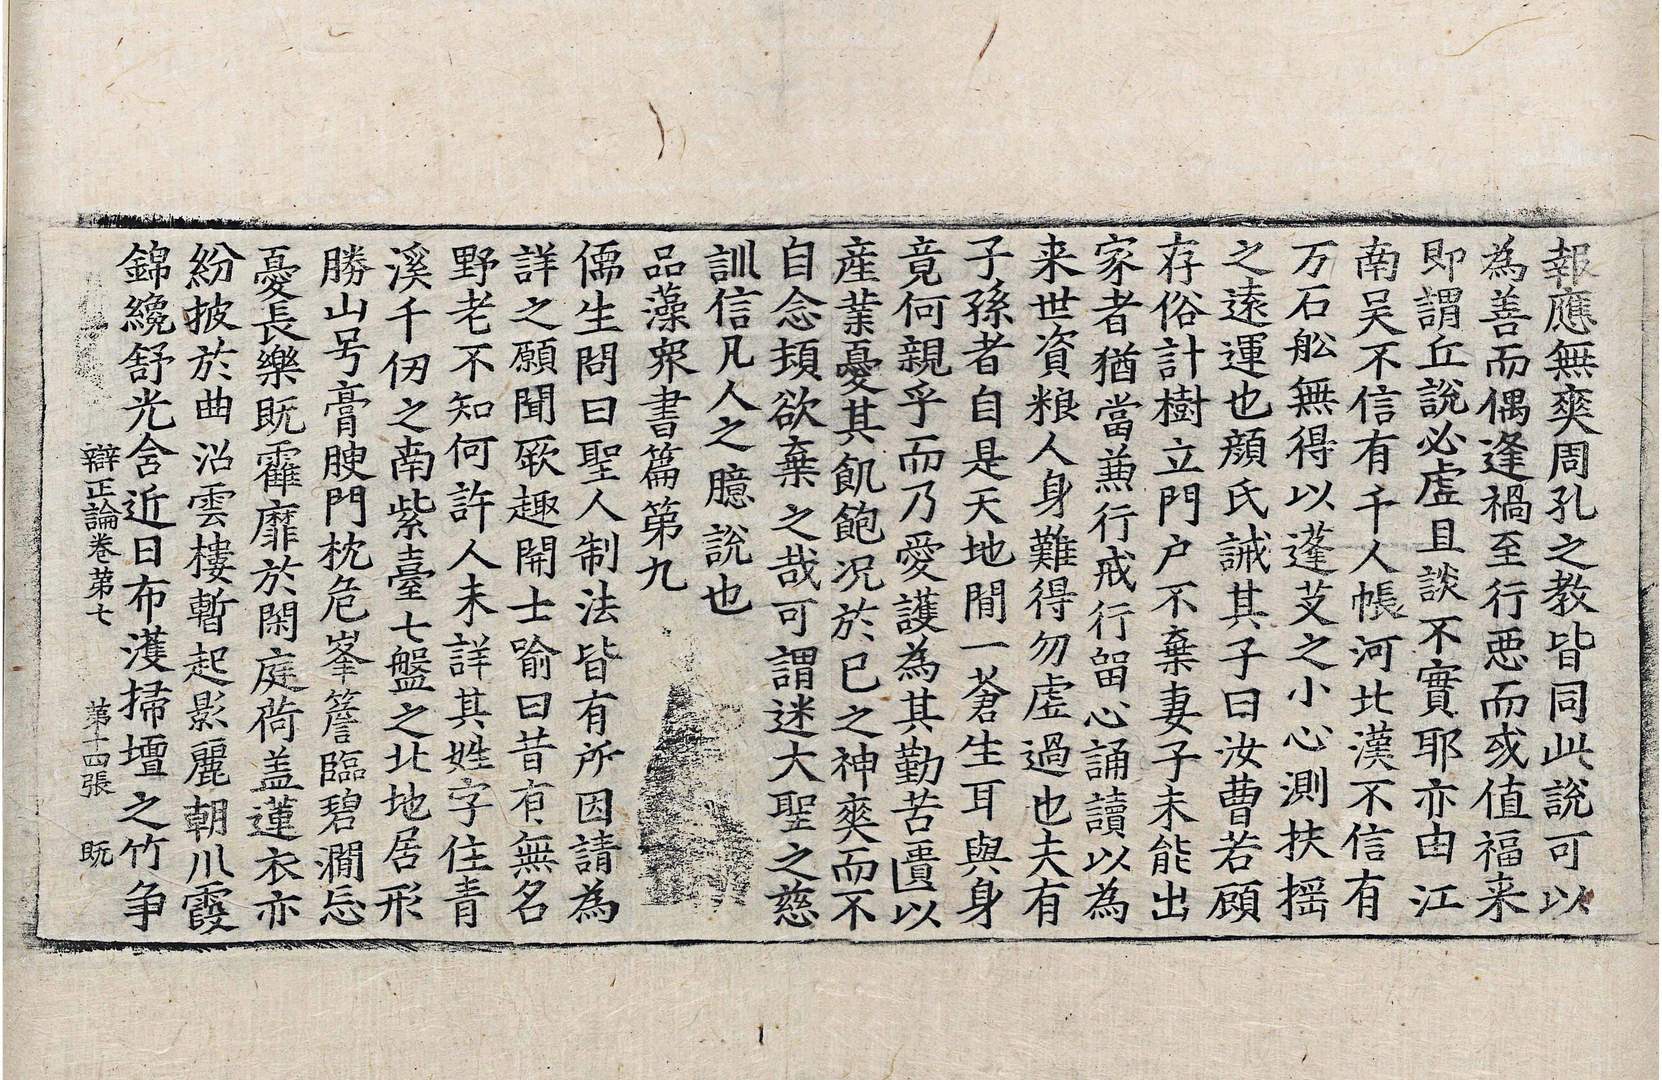 報應無爽周孔之教皆同此說可以
為善而偶逢禍至行惡而或值福来
即謂丘說必虛且談不實耶亦由江
南吳不信有千人帳河北漢不信有
万石舩無得以蓬芆之小心測扶搖
之遠運也顔氏誡其子曰汝曹若顧
存俗計樹立門戶不棄妻子未能出
家者猶當兼行戒行留心誦讀以為
来世資粮人身難得勿虛過也夫有
子孫者自是天地間一蒼生耳與身
竟何親乎而乃愛護為其勤苦匱以
產業憂其飢飽况於已之神爽而不
自念頓欲棄之哉可謂迷大聖之慈
訓信凡人之臆說也
品藻衆書篇第九
儒生問曰聖人制法皆有所因請為
詳之願聞厥趣開士喻曰昔有無名
野老不知何許人未詳其姓字住青
溪千仞之南紫臺七盤之北地居形
勝山号膏腴門枕危峯簷臨碧澗忘
憂長樂既靃靡於閑庭荷盖蓮衣亦
紛披於曲沼雲樓暫起影麗朝川霞
錦纔舒光含近日布濩掃壇之竹争
辯正論卷第七 第十四張 既